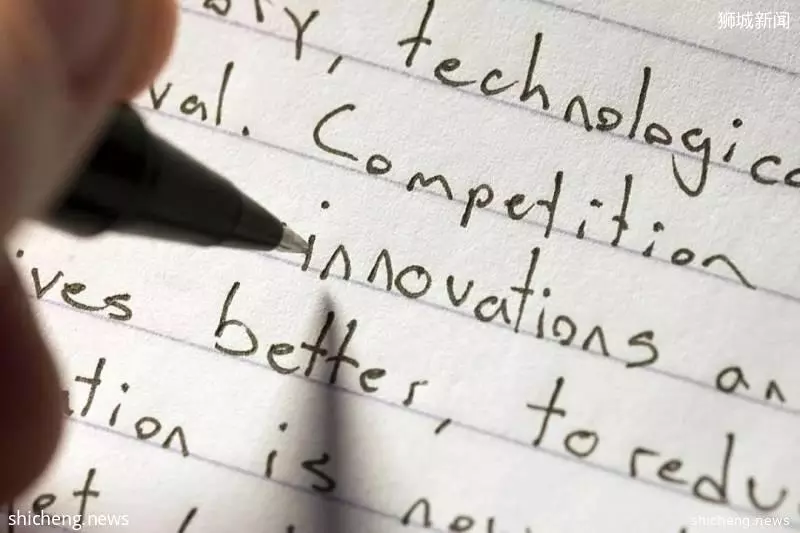 狮城新闻
technologica
val. Competition
innovations an
ives better, to redu
ation is
et
shicheng.news
shicheng.news